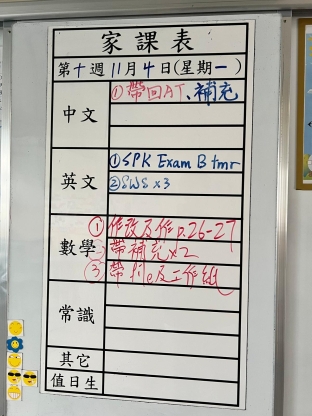 家課表
第十週11月4日(星期一)
中文
①帶回AT、補充
英文
①SPK Exam B tmr
②SWS x3
數學
①作改及作p.26-27
②帶補充x2
③帶 及工作紙
常識
其它
值日生